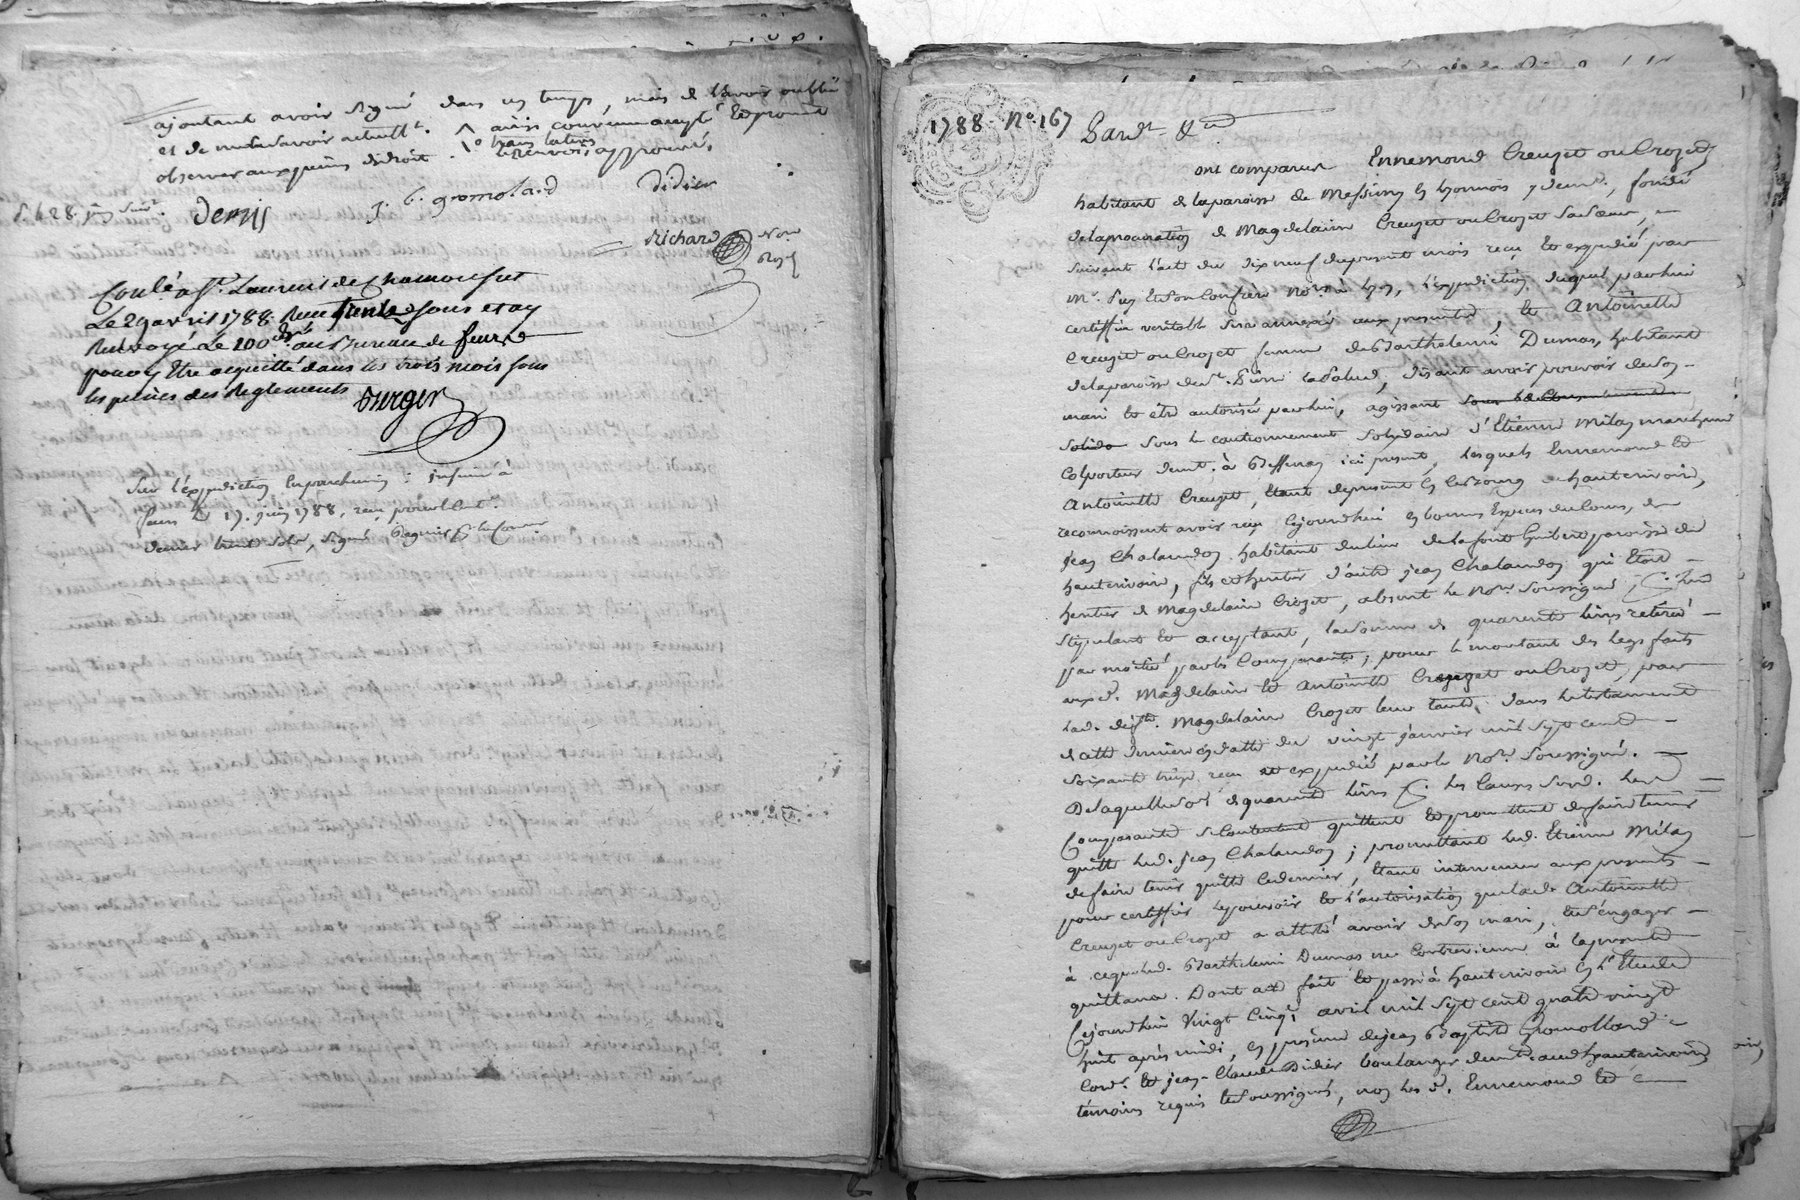 ajoutant avoir signé dans un temps, mais de l'avoir oublié
et de ne le savoir actuellt.
observer aux peines de droit. trans latéris
le renvoi, approuvé,
Didier
J. B. gromolard
Denis
Richard Nore
Royl
Conlé a St. Laurent de Chamousset
Le 29 avril 1788. Recu trente sous et ay
Renvoyé Le 100 au Bureau de feurs
pouvoy Etre acquitté dans les trois mois sous
les peines des Reglements
Durger
Sur l'expedition en parchemin
Feurs le 17. juin 1788, reçu pour le Cent.
denier trente sols, signé
1788. No. 167
Pardt. &a
ont comparus Ennemond Creuzet ou Crozet,
habitant de la paroisse de Messimy en Lyonnois y demt., fondé
de la procuration de Magdelaine Creuzet ou Crozet sa sœur,
suivant l'acte du dix neuf du present mois reçu et expedié par
Mr. et son Confrère Nores. à Lyon, l'expedition duquel par lui
certiffiée veritable sera annexée aux presentes, et Antoinette
Creuzet ou Crozet femme de Barthelemi Dumas, habitant
de la paroisse de St. Pierre la Palud, disant avoir pouvoir de son
mari et être autorisée par lui, agissant
solido sous le cautionnement solidaire d'Etienne Milan marchand
Colporteur demt. à Bessenay ici present, lesquels Ennemond et
Antoinette Creuzet, étant de present en ce bourg de hauterivoire,
reconnoissent avoir reçu cejourdhui en bonnes Espèces du Cours, de
Jean Chalandon habitant du lieu de la font paroisse de
hauterivoire, fils et heritier d'autre Jean Chalandon qui étoit
heritier de Magdelaine Crozet, absent le Nore. soussigné pr. lui
stipulant et acceptant, la somme de quarente livres retirée
par moitié par les Comparants, pour le montant des legs faits
aux d. Magdelaine et Antoinette Creuzet ou Crozet, par
lad. defte. Magdelaine Crozet leur tante, dans le testament
de cette derniere en datte du vingt janvier mil sept cent
soixante treize, reçu et expedié par le Nore. soussigné.
De laquelle somme de quarente livres pr. les causes susd. lesd.
Comparants se contentent quittent et promettent de faire tenir
quitte led. Jean Chalandon; promettant led. Etienne Milan
de faire tenir quitte ce dernier, étant intervenu aux presentes
pour certiffier le pouvoir et l'autorisation que lad. Antoinette
Creuzet ou Crozet a attesté avoir de son mari, et s'engager
à ce que led. Barthelemi Dumas ne contrevienne à la presente
quittance. Dont acte fait et passé à hauterivoire en l'Etude
Cejourdhui vingt cinq avril mil sept cent quatre vingt
huit après midi, en presence de jean Baptiste Gromollard
Cordr. et jean-Claude Didier boulanger demt. aud. hauterivoire
témoins requis et soussignés, non les d. Ennemond et